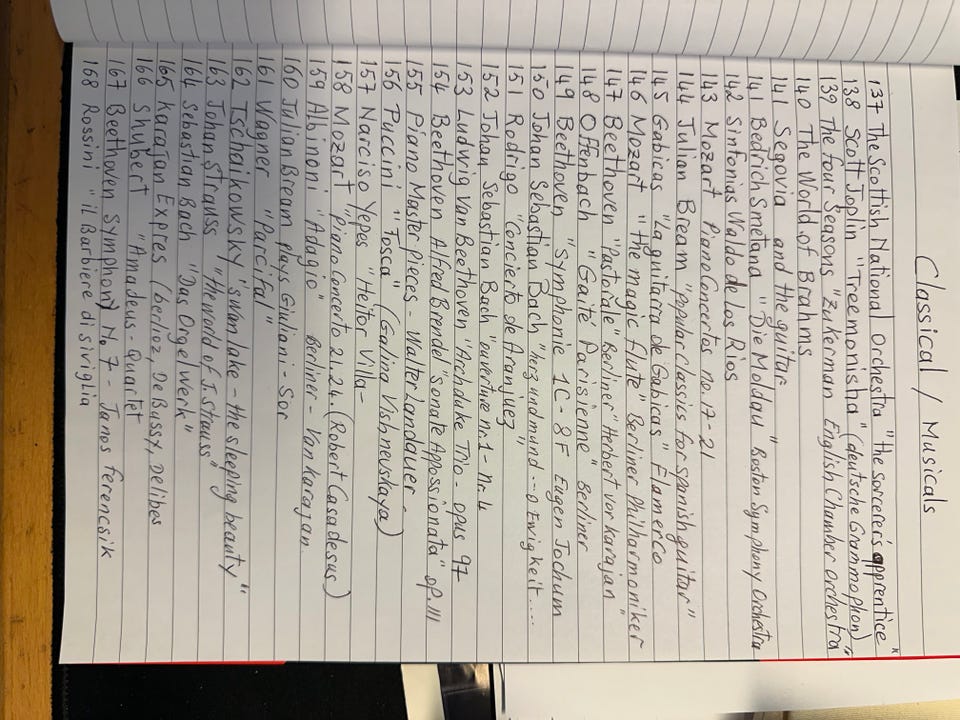 Classical / Musicals
137 The Scottish National Orchestra "the sorcerer's apprentice"
138 Scott Joplin "Treemonisha" (deutsche Grammophon)
139 The four Seasons "zukerman English Chamber orchestra"
140 The World of Brahms
141 Segovia and the guitar
141 Bedrich Smetana "Die Moldau" Boston Symphony Orchestra
142 Sinfonias Waldo de Los Rios
143 Mozart Piano Concertos no. 17 - 21
144 Julian Bream "Popular classics for spanish guitar"
145 Gabicas "La guitarra de Gabicas" Flamenco
146 Mozart "the magic flute" Berliner Philharmoniker
147 Beethoven "Pastorale" Berliner "Herbert von Karajan"
148 Offenbach "Gaité Parisienne" Berliner
149 Beethoven "Symphonie 1C - 8F Eugen Jochum
150 Johan Sebastian Bach "herz und mund ... o Ewigkeit ...
151 Rodrigo "Concierto de Aranjuez
152 Johan Sebastian Bach "ouverture nr. 1 - nr. 4
153 Ludwig van Beethoven "Archduke Trio - opus 97
154 Beethoven Alfred Brendel "Sonate Appossionata" op. 111
155 Piano Master Pieces - Walter Landauer
156 Puccini "Tosca" (Galina Vishnevskaya)
157 Narciso Yepes "Heitor Villa -
158 Mozart "piano Concerto 21.24 (Robert Casadesus)
159 Albinoni "Adagio" Berliner - Van Karajan.
160 Julian Bream plays Giuliani - Sor
161 Wagner "Parcifal"
162 Tschaikowsky 'swan lake - the sleeping beauty"
163 Johan Strauss "the world of J. Strauss"
164 Sebastian Bach "Das Orgelwerk"
165 Karajan Expres (berlioz, De Bussy, Delibes
166 Shubert "Amadeus - Quartet
167 Beethoven Symphony No 7 - Janos ferencsik
168 Rossini "il Barbiere di siviglia